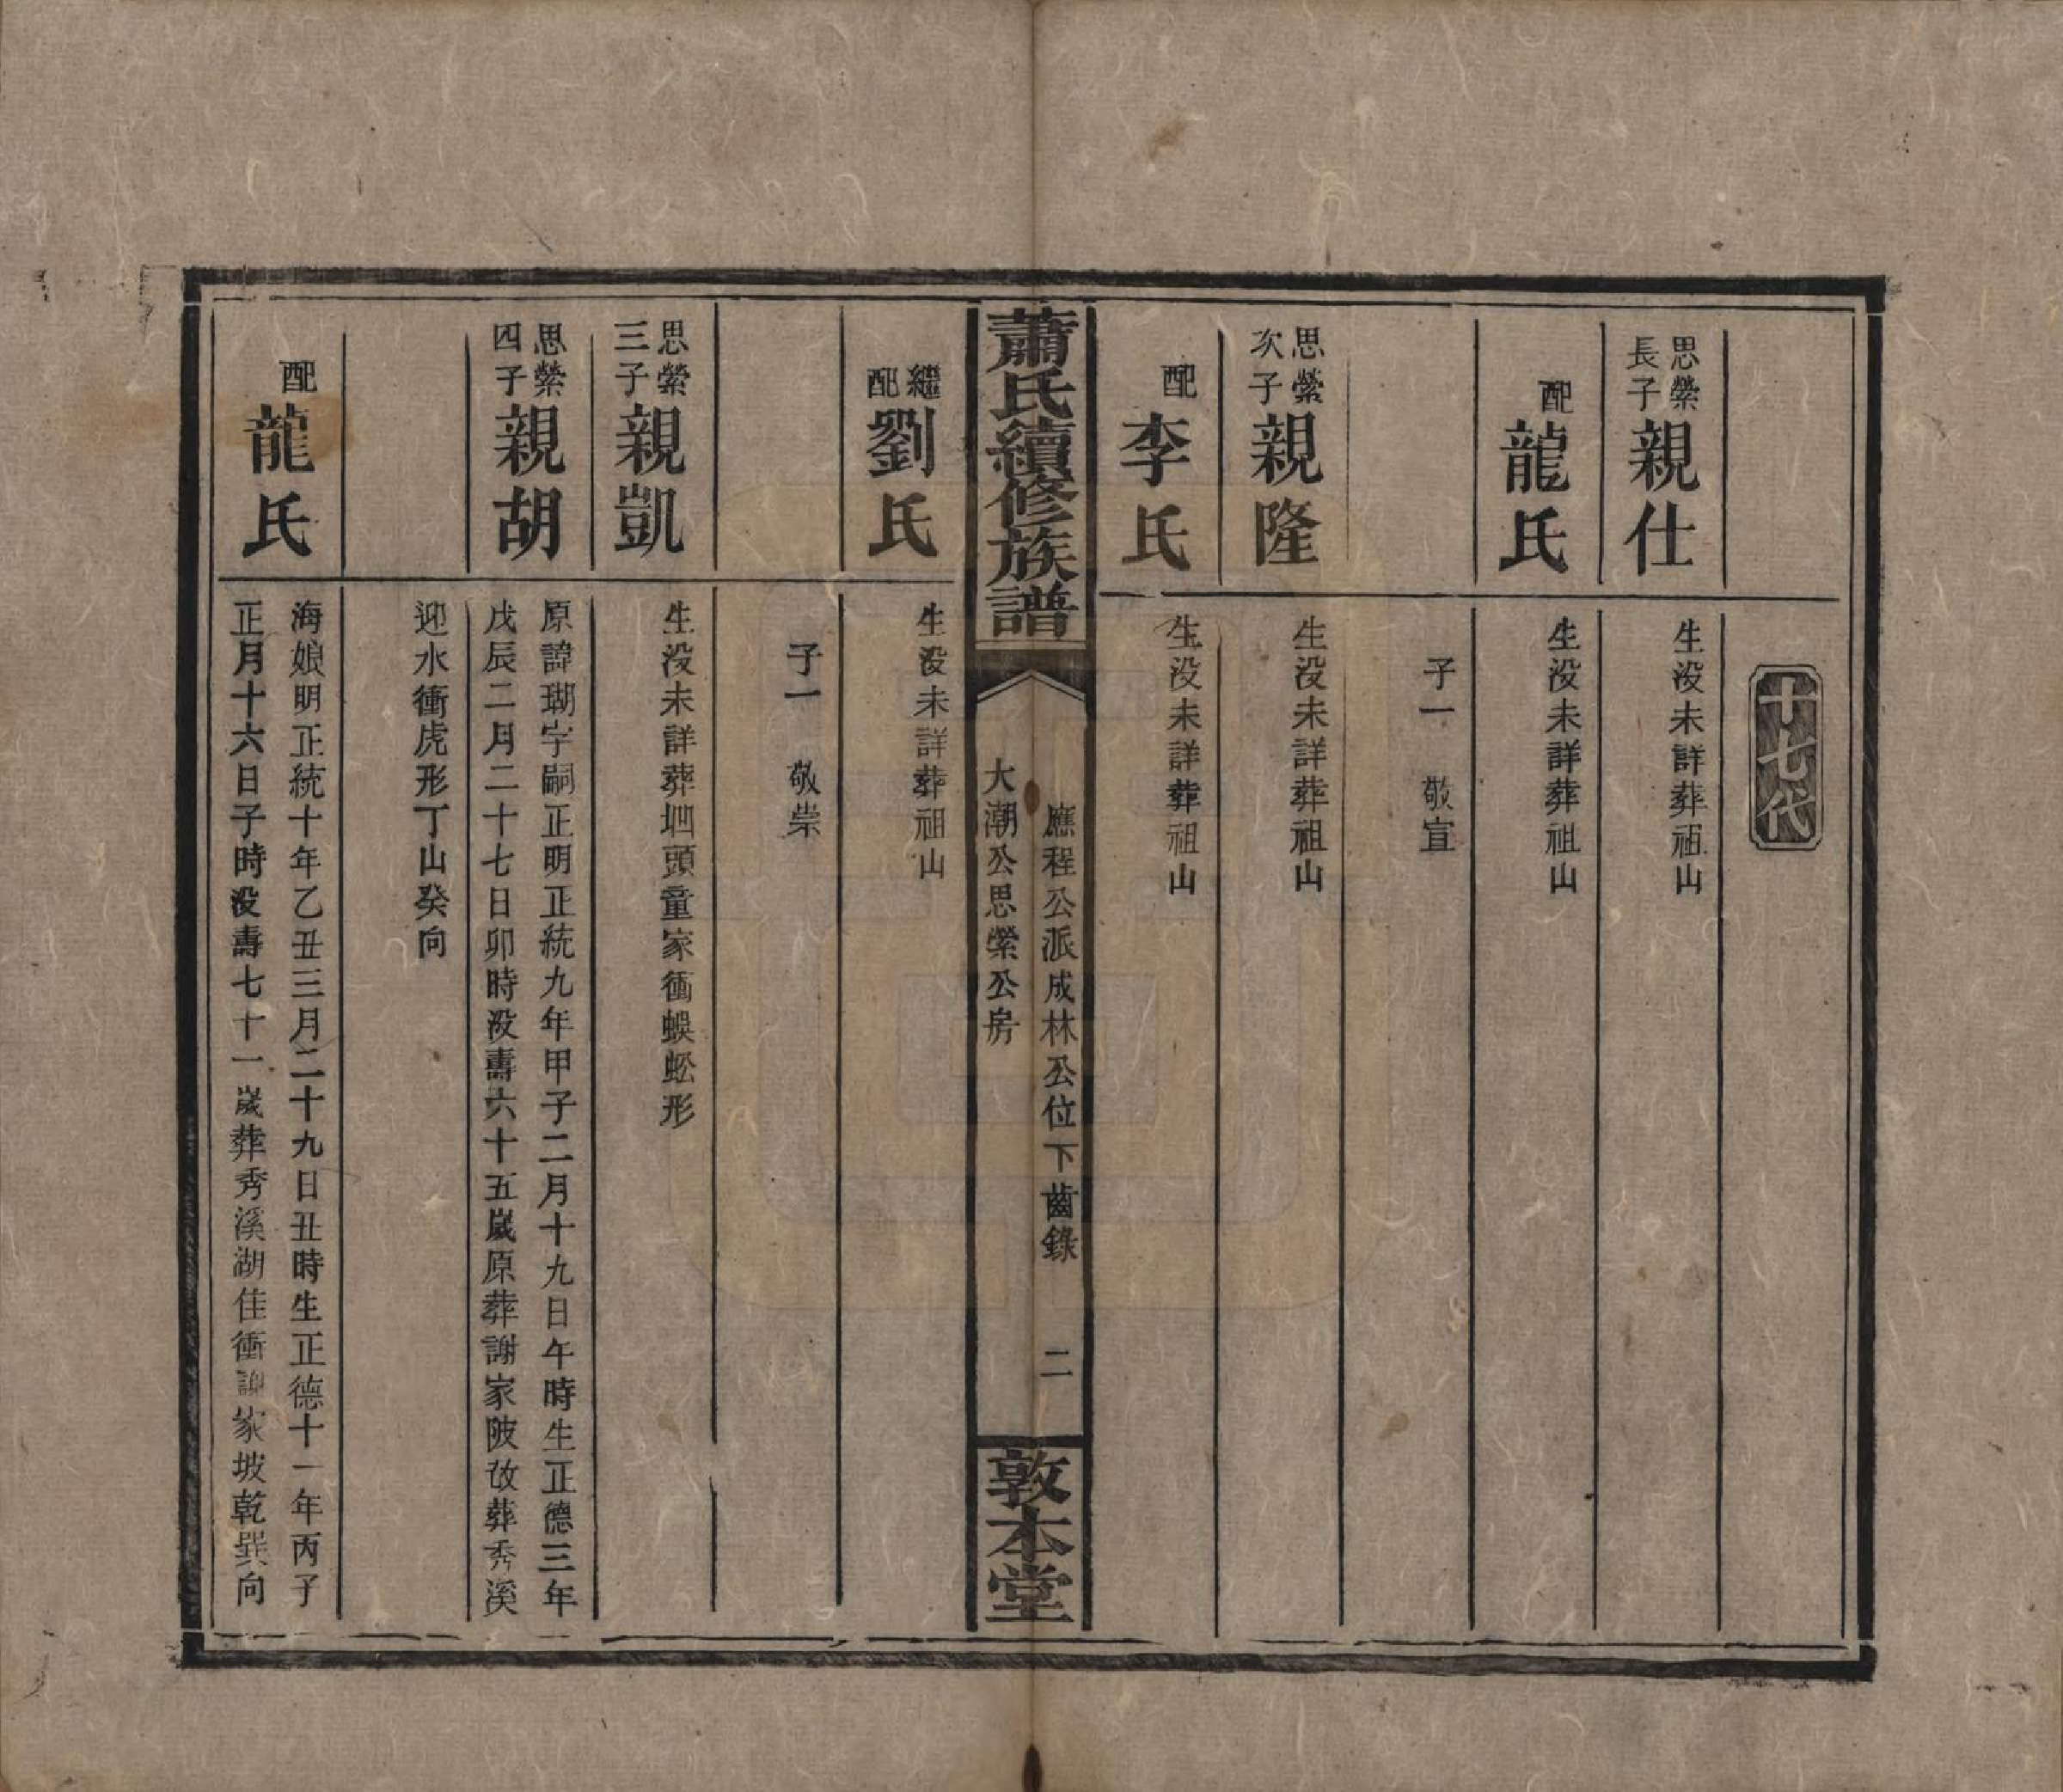 十七代
思縈長子親仕
生没未詳葬祖山
配龍氏
生没未詳葬祖山
子一　敬宣
思縈次子親隆
生没未詳葬祖山
配李氏
生没未詳葬祖山
蕭氏續修族譜
應程公派成林公位下齒錄　二
大潮公思縈公房
敦本堂
繼配劉氏
生没未詳葬祖山
子一　敬崇
思縈三子親凱
生没未詳葬坰頭童家衝蜈蚣形
思縈四子親胡
原諱瑚字嗣正明正統九年甲子二月十九日午時生正德三年
戊辰二月二十七日卯時没壽六十五歲原葬謝家陂改葬秀溪
迎水衝虎形丁山癸向
配龍氏
海娘明正統十年乙丑三月二十九日丑時生正德十一年丙子
正月十六日子時没壽七十一歲葬秀溪湖佳衝謝家坡乾巽向